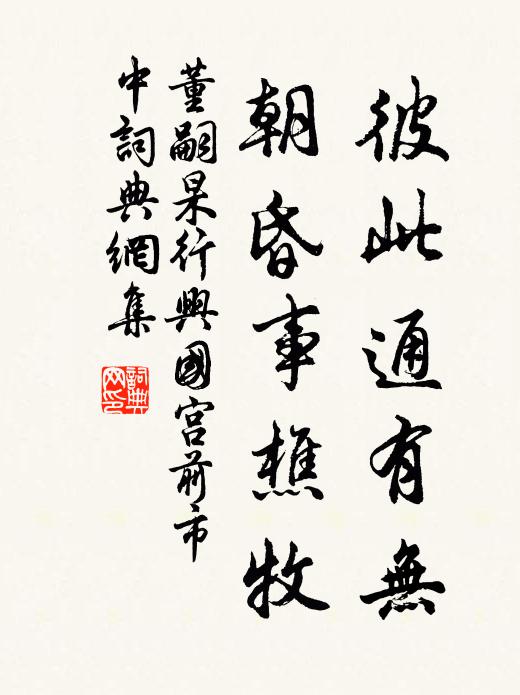 彼此通有無
朝昏事樵牧
董嗣杲行興國宮前市
中詞典網集
詞典
网印